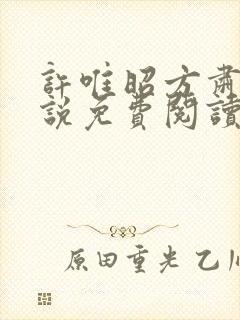 許唯昭方肅
說免費閱讀
原田重光 乙川